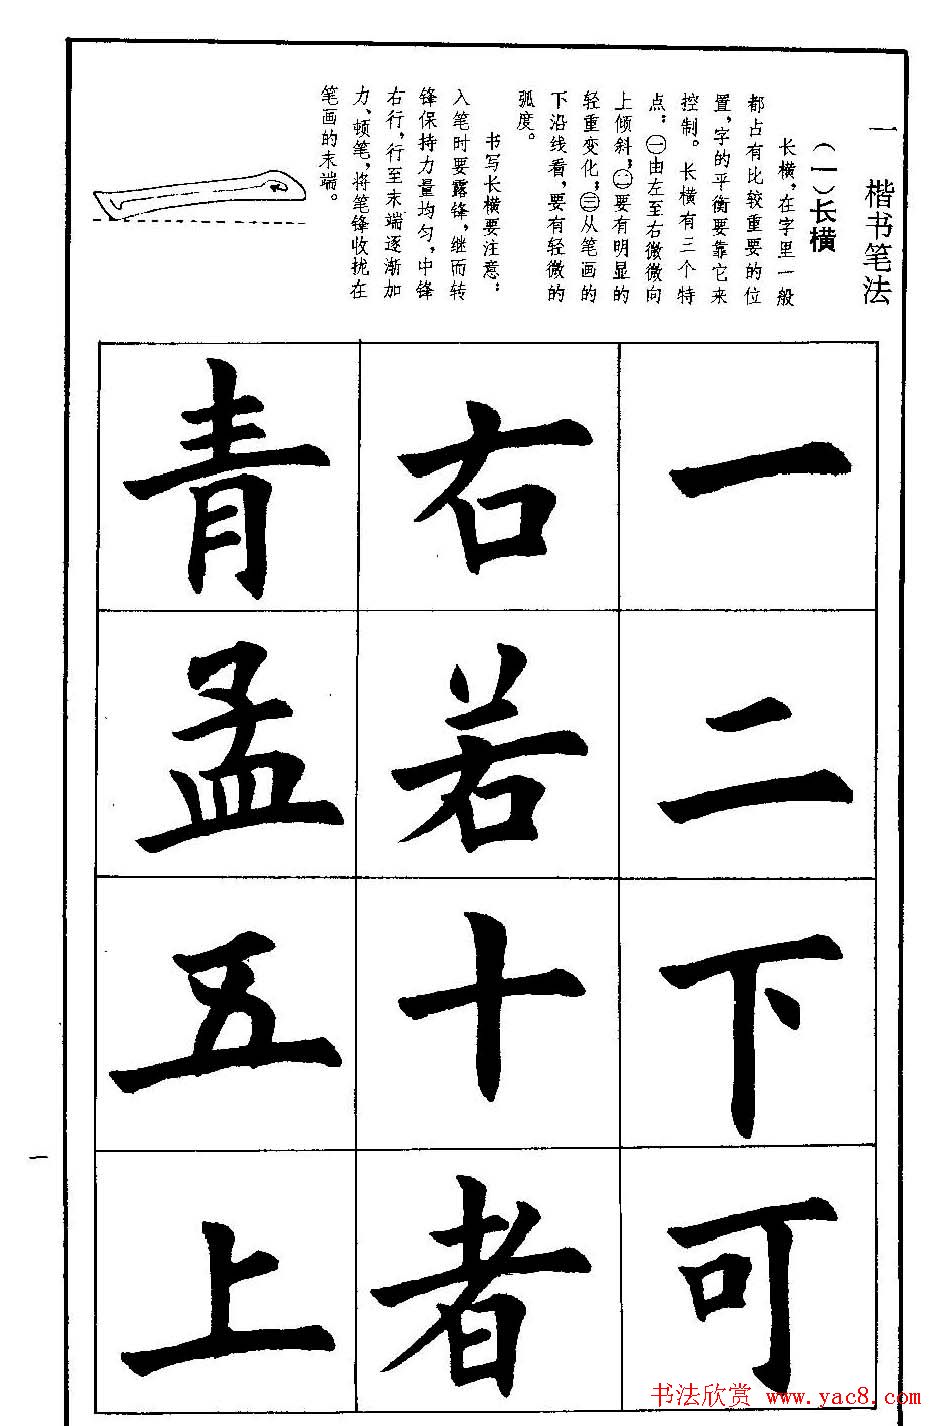 一 楷书笔法
(一)长横
长横,在字里一般
都占有比较重要的位
置,字的平衡要靠它来
控制。长横有三个特
点:㊀由左至右微微向
上倾斜;㊁要有明显的
轻重变化;㊂从笔画的
下沿线看,要有轻微的
弧度。
书写长横要注意:
入笔时要露锋,继而转
锋保持力量均匀,中锋
右行,行至末端逐渐加
力、顿笔,将笔锋收拢在
笔画的末端。
一
二
下
可
右
若
十
者
青
孟
五
上
一
书法欣赏 www.yac8.com